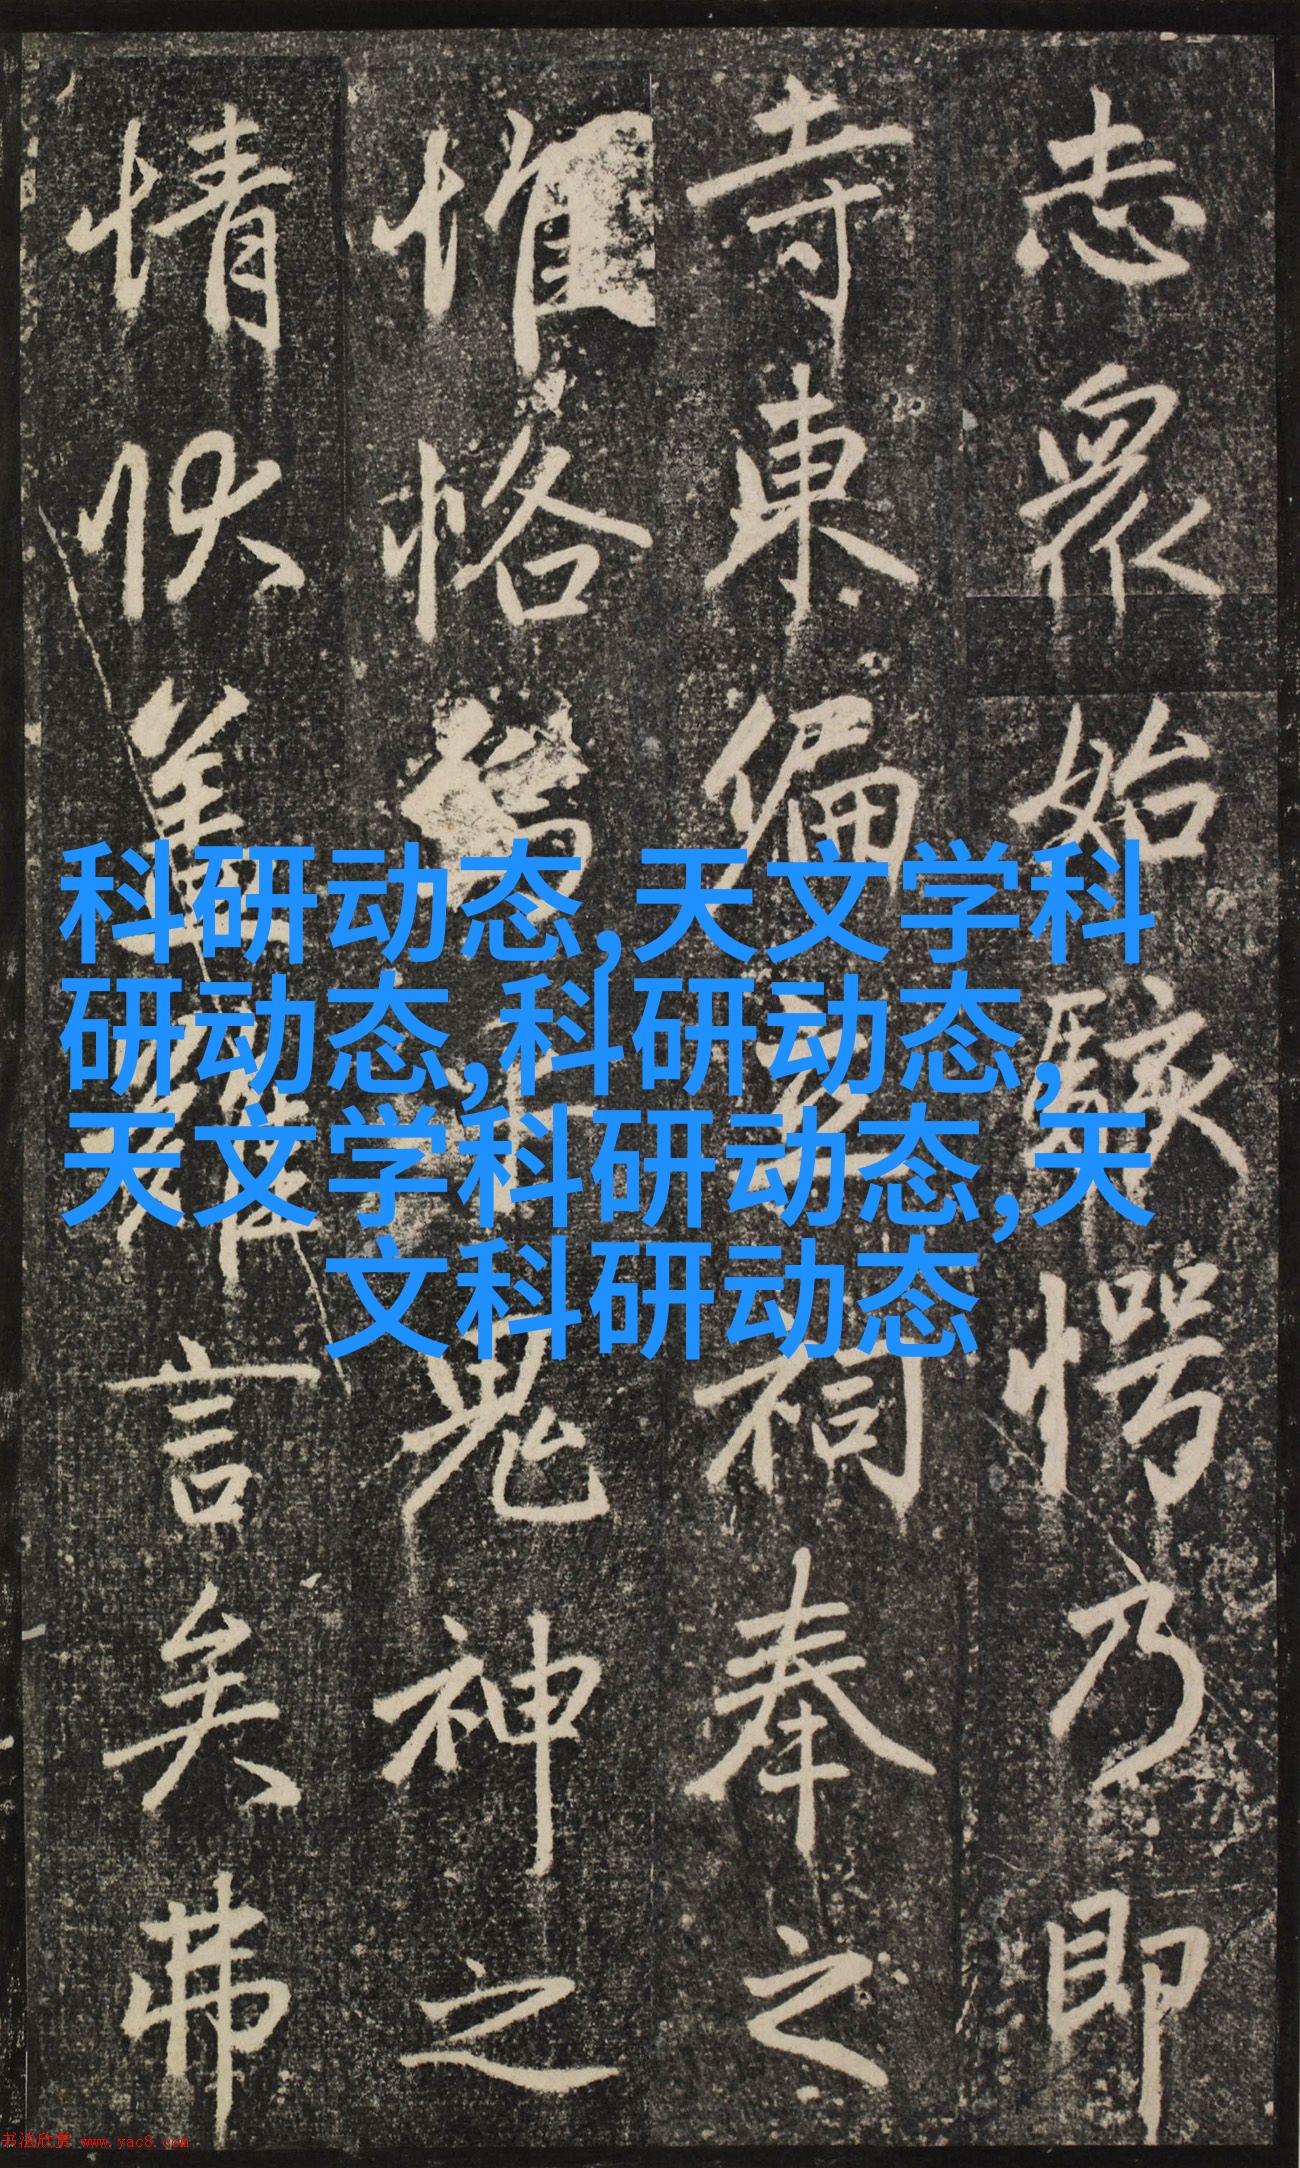 志眾始駭愕乃即
寺東偏立祠奉之
惟恪鬼神之
情狀蓋難言矣弗
科研动态,天文学科
研动态,科研动态,
天文学科研动态,天
文科研动态
书法欣赏 www.yac8.com